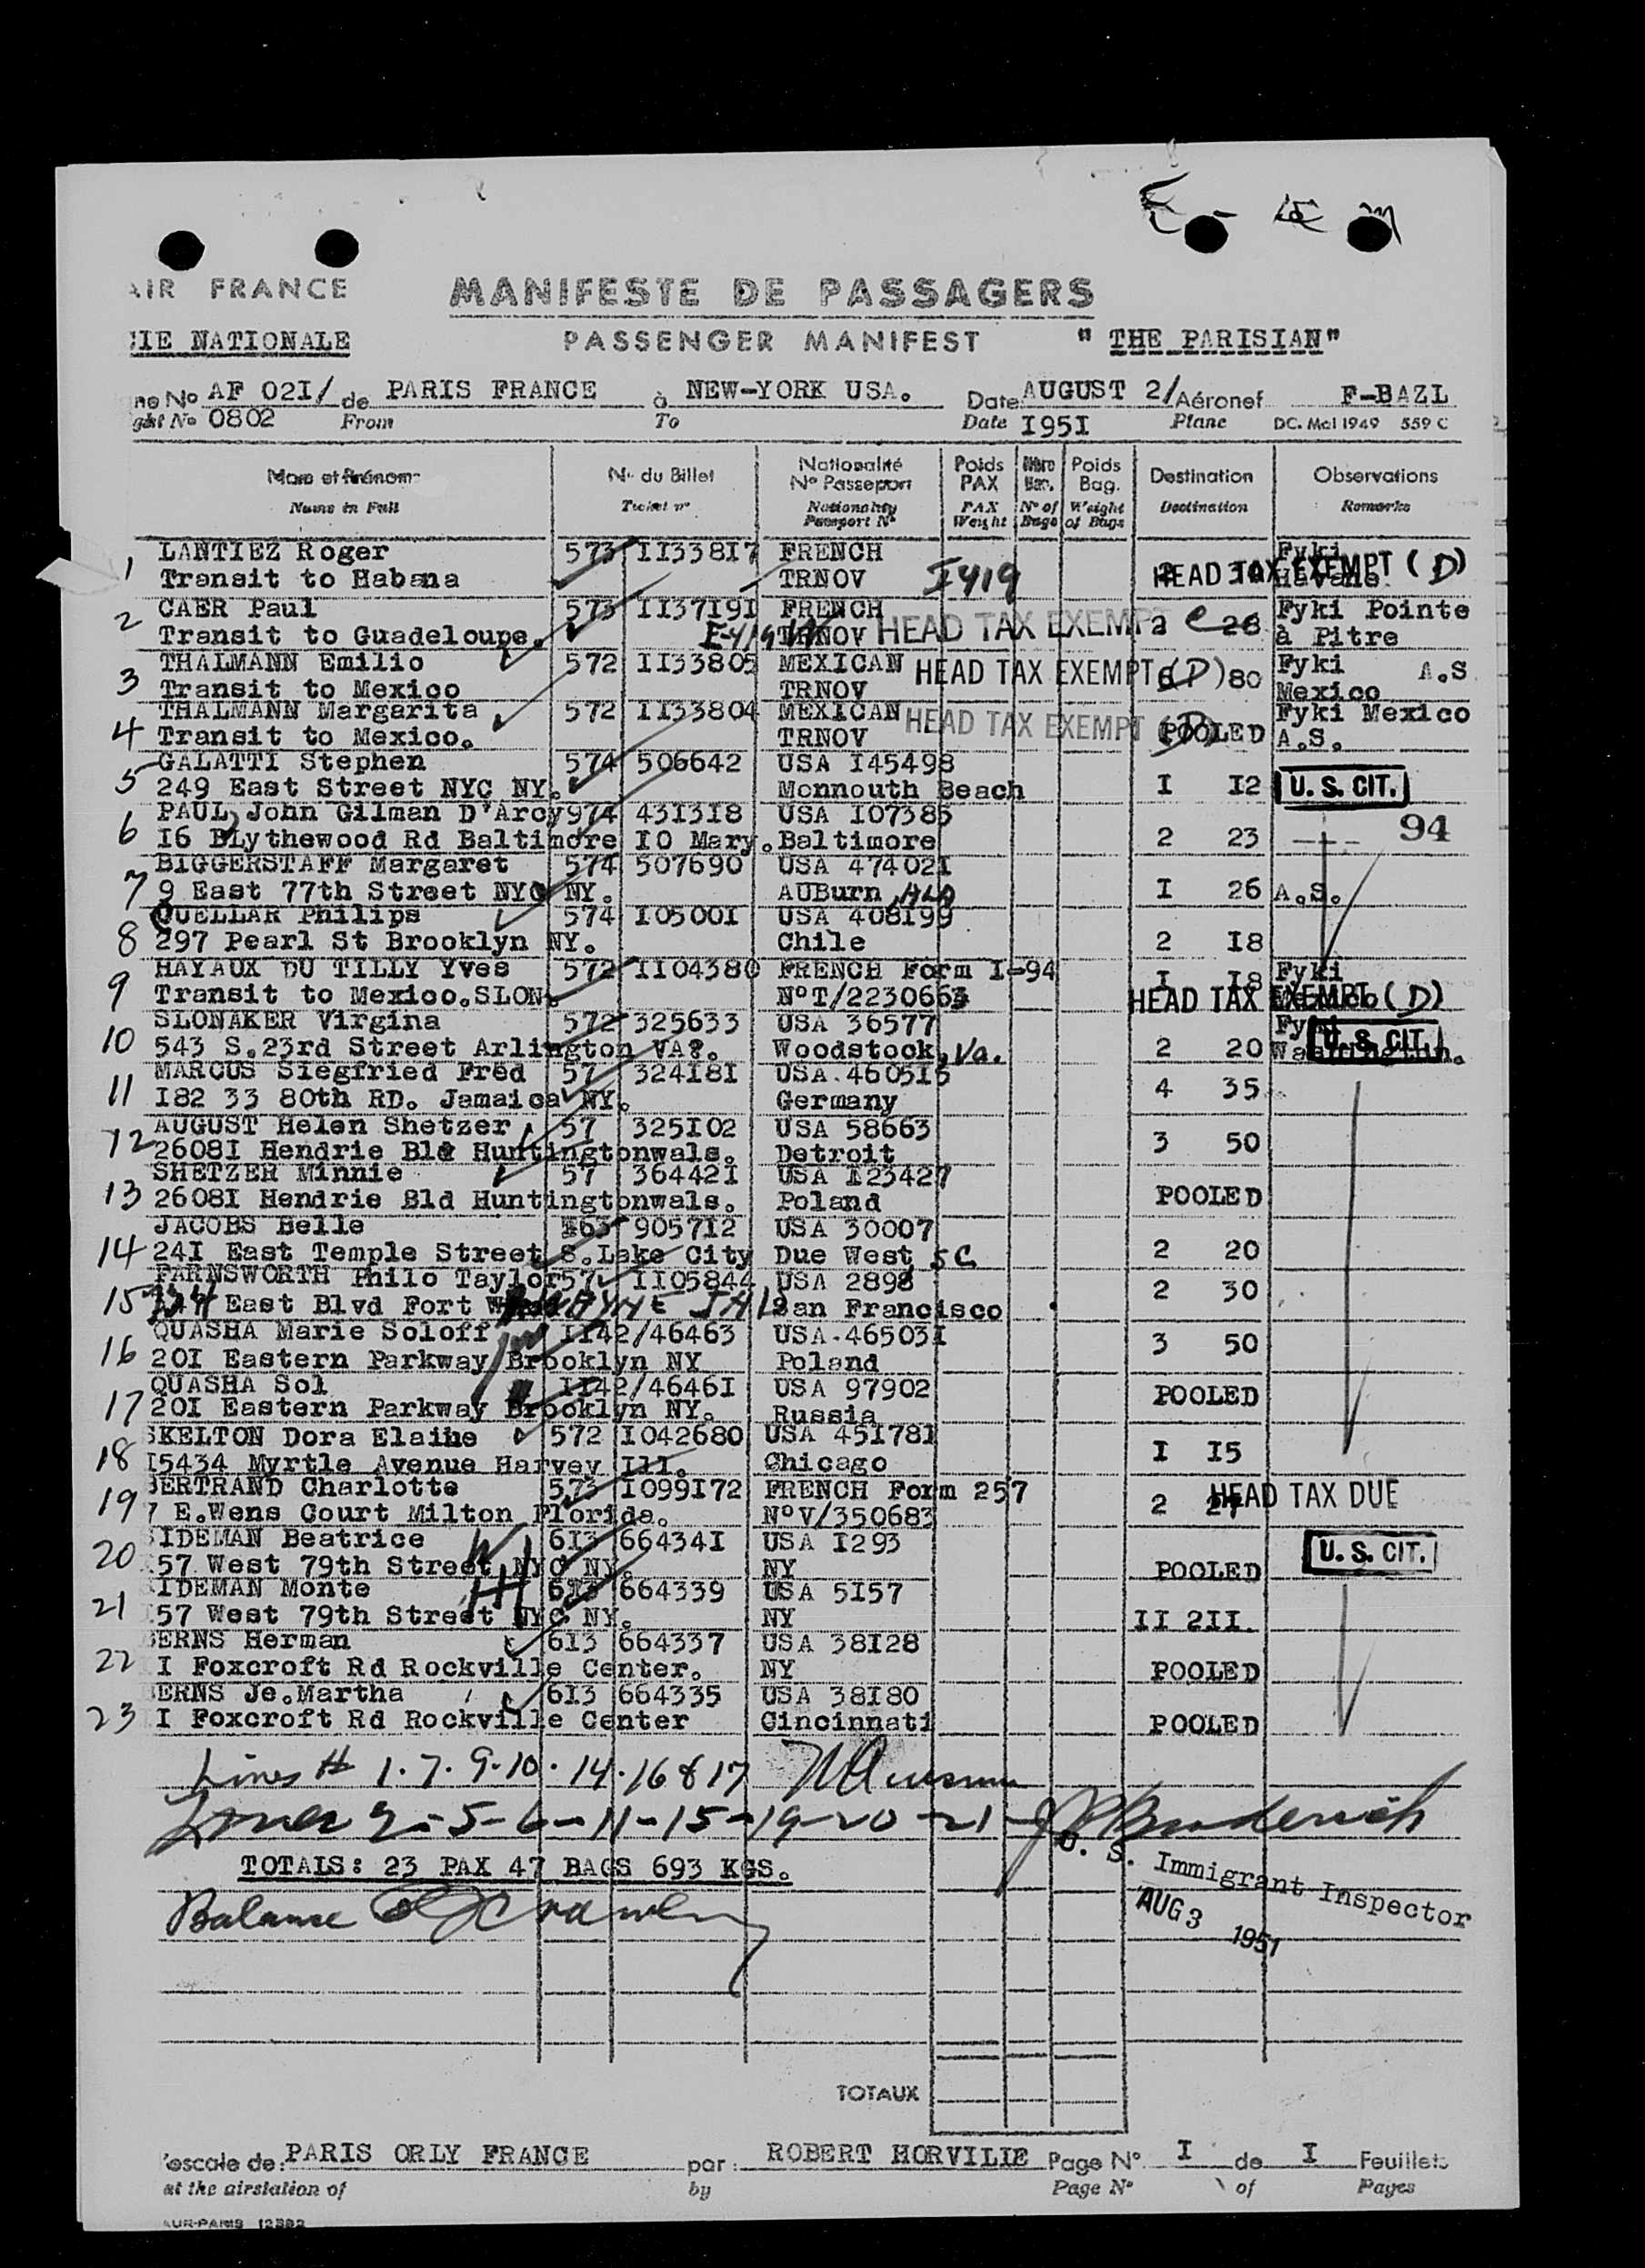 AIR FRANCE
MANIFESTE DE PASSAGERS
CIE NATIONALE PASSENGER MANIFEST " THE PARISIAN"
ne No AF 02I/ de PARIS FRANCE à NEW-YORK USA. Date AUGUST 2/ Aéronef F-BAZL
ght No 0802 From To Date I95I Plane DC. Mol 1949 559 C
Nom et Prénom N° du Billet Nationalité N° Passeport Poids PAX Nbre Bag. Poids Bag. Destination Observations
Name in Full Ticket n° Nationality Passport N° PAX Weight N° of Bags Weight of Bags Destination Remarks
1 LANTIEZ Roger 573 II338I7 FRENCH Fyki
Transit to Habana TRNOV I419 HEAD TAX EXEMPT (D) Havana
2 CAER Paul 573 II37I9I FRENCH Fyki Pointe
Transit to Guadeloupe. TRNOV HEAD TAX EXEMPT 2 28 à Pitre
3 THALMANN Emilio 572 II33805 MEXICAN HEAD TAX EXEMPT (D) 80 Fyki A.S
Transit to Mexico TRNOV Mexico
4 THALMANN Margarita 572 II33804 MEXICAN HEAD TAX EXEMPT (D) Fyki Mexico
Transit to Mexico. TRNOV POOLED A.S.
5 GALATTI Stephen 574 506642 USA I45498
249 East Street NYC NY. Monnouth Beach I I2 U. S. CIT.
6 PAUL, John Gilman D'Arcy 974 43I3I8 USA I07385
I6 BLythewood Rd Baltimore IO Mary. Baltimore 2 23 94
7 BIGGERSTAFF Margaret 574 507690 USA 47402I
9 East 77th Street NYC NY. AUBurn, ALA I 26 A.S.
8 QUELLAR Philips 574 I0500I USA 408I99
297 Pearl St Brooklyn NY. Chile 2 I8
9 HAYAUX DU TILLY Yves 572 II04380 FRENCH Form I-94 I I8 Fyki
Transit to Mexico.SLON. N°T/2230663 HEAD TAX EXEMPT (D) Mexico
10 SLONAKER Virgina 572 325633 USA 36577 Fyki
543 S.23rd Street Arlington VA?. Woodstock, Va. 2 20 Washington. U. S. CIT.
11 MARCUS Siegfried Fred 57 324I8I USA.460515
I82 33 80th RD. Jamaica NY. Germany 4 35
12 AUGUST Helen Shetzer 57 325I02 USA 58663
2608I Hendrie Bld Huntingtonwals. Detroit 3 50
13 SHETZER Minnie 57 36442I USA I23427
2608I Hendrie Bld Huntingtonwals. Poland POOLED
14 JACOBS Belle I63 9057I2 USA 30007
24I East Temple Street S.Lake City Due West SC 2 20
15 FARNSWORTH Philo Taylor 57 II05844 USA 2898
734 East Blvd Fort WAYNE San Francisco 2 30
16 QUASHA Marie Soloff II42/46463 USA.46503I
20I Eastern Parkway Brooklyn NY Poland 3 50
17 QUASHA Sol II42/4646I USA 97902
20I Eastern Parkway Brooklyn NY. Russia POOLED
18 SKELTON Dora Elaine 572 I042680 USA 45I78I
I5434 Myrtle Avenue Harvey Ill. Chicago I I5
19 BERTRAND Charlotte 573 I099I72 FRENCH Form 257
7 E.Wens Court Milton Florida. N°V/350683 2 27 HEAD TAX DUE
20 SIDEMAN Beatrice 613 66434I USA I293
57 West 79th Street NYC NY. NY POOLED U. S. CIT.
21 SIDEMAN Monte 613 664339 USA 5I57
57 West 79th Street NYC NY. NY II 2II.
22 BERNS Herman 613 664337 USA 38I28
I Foxcroft Rd Rockville Center. NY POOLED
23 BERNS Je.Martha 613 664335 USA 38I80
I Foxcroft Rd Rockville Center Cincinnati POOLED
Lines # 1.7.9.10.14.16 & 17
Lines 2-5-6-11-15-19-20-21
U. S. Immigrant Inspector
TOTALS: 23 PAX 47 BAGS 693 KGS.
AUG 3 1951
Balance
TOTAUX
'escale de: PARIS ORLY FRANCE par: ROBERT HORVILIE Page N° I de I Feuillets
at the airstation of by Page N° of Pages
AUR-PARIS 12382